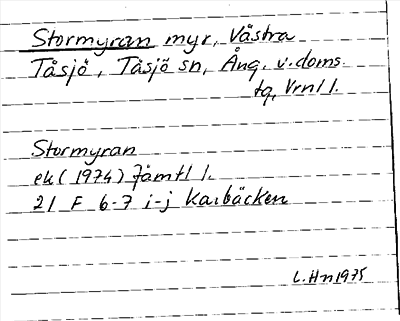 Stormyran myr, Västra
Tåsjö, Tåsjö sn, Ång. v. doms.
tg, Vrnl l.
Stormyran
ek (1974) Jämtl l.
21 F 6-7 i-j Karbäcken
L.Hn 1975